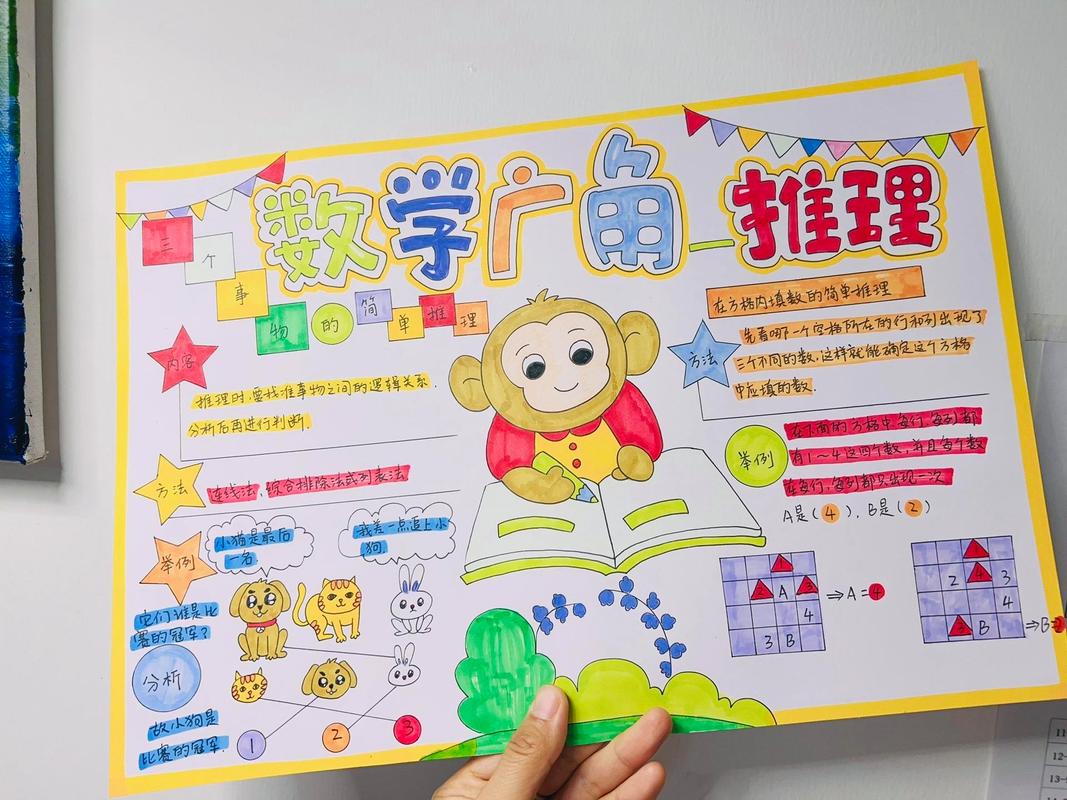 数学广角—推理
三个事物的简单推理
内容
推理时,要找准事物之间的逻辑关系.
分析后再进行判断.
方法
连线法,综合排除法或列表法
举例
小猫是最后
一名.
我差一点追上小
狗.
它们谁是比
赛的冠军?
分析
故小狗是
比赛的冠军.
1
2
3
在方格内填数的简单推理
方法
先看哪一个空格所在的行和列出现了
三个不同的数,这样就能确定这个方格
中应填的数.
举例
在下面的方格中每行,每列都
有1~4这四个数,并且每个数
在每行,每列都只出现一次
A是(4),B是(2)
1
2 A 3
4
3 B
⇒A=4
1
2 4 3
4
3 B
⇒B=2
11
12
13